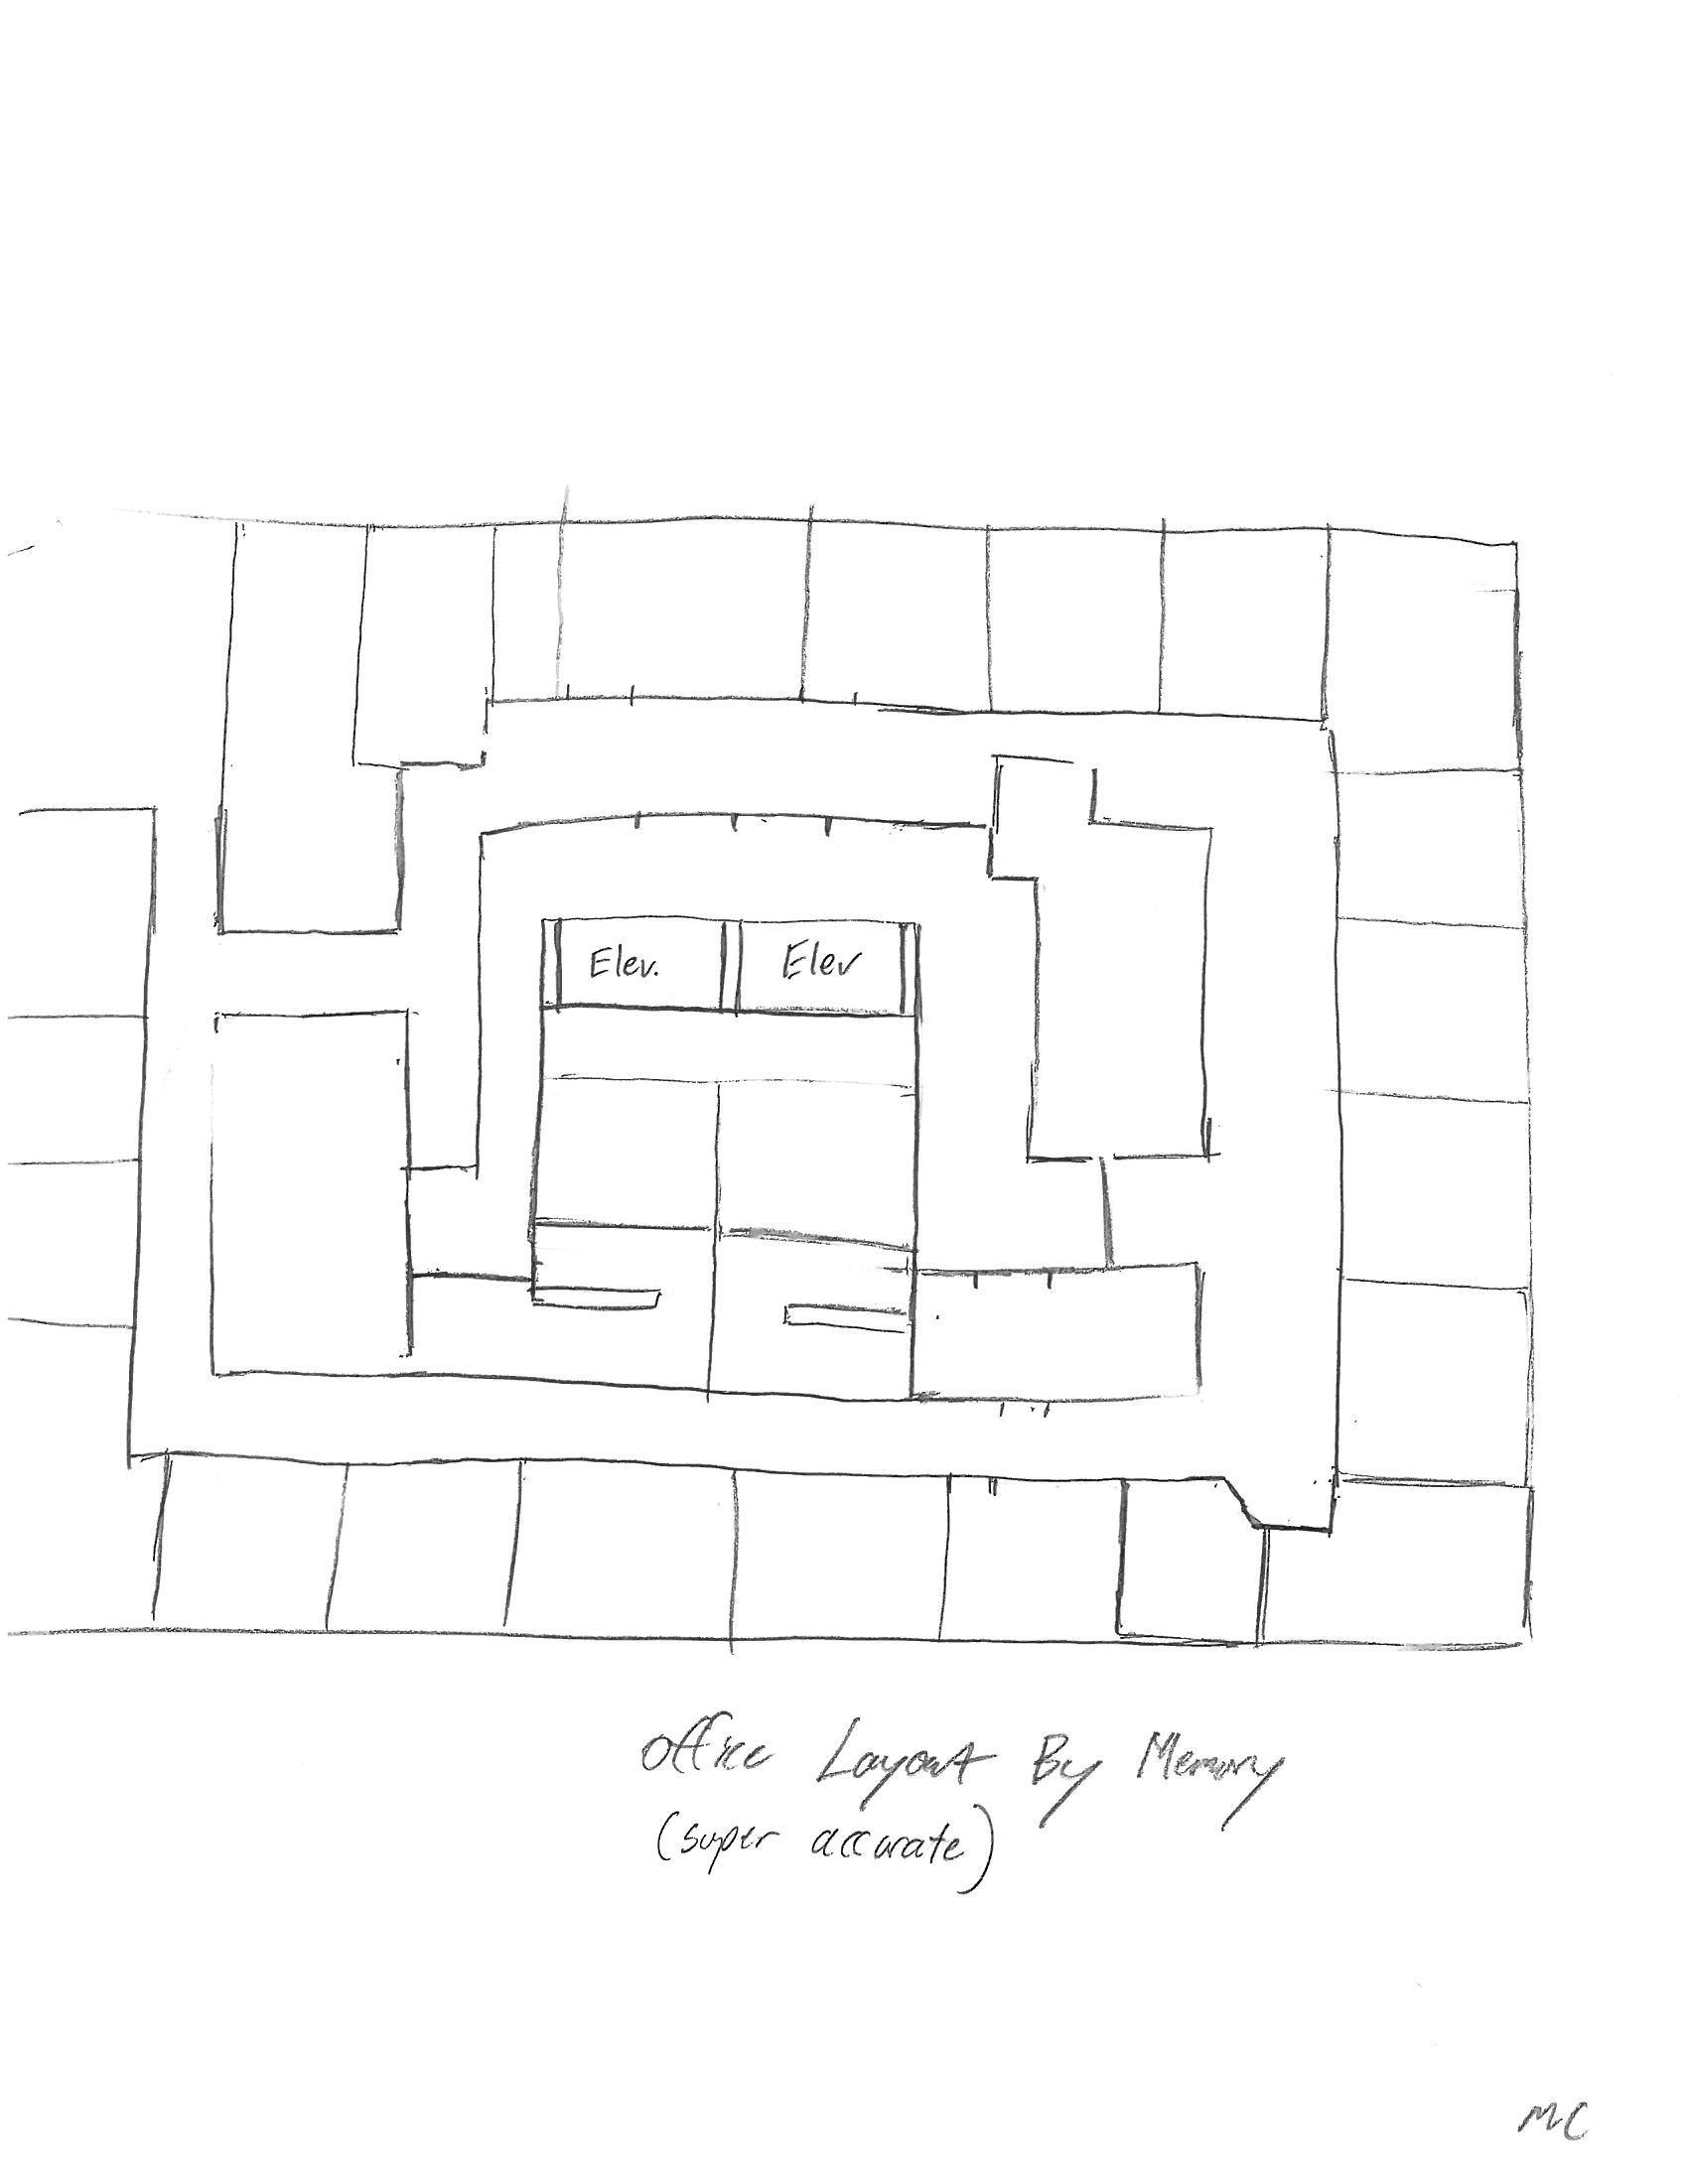 Elev. Elev
Office Layout By Memory
(super accurate)
MC